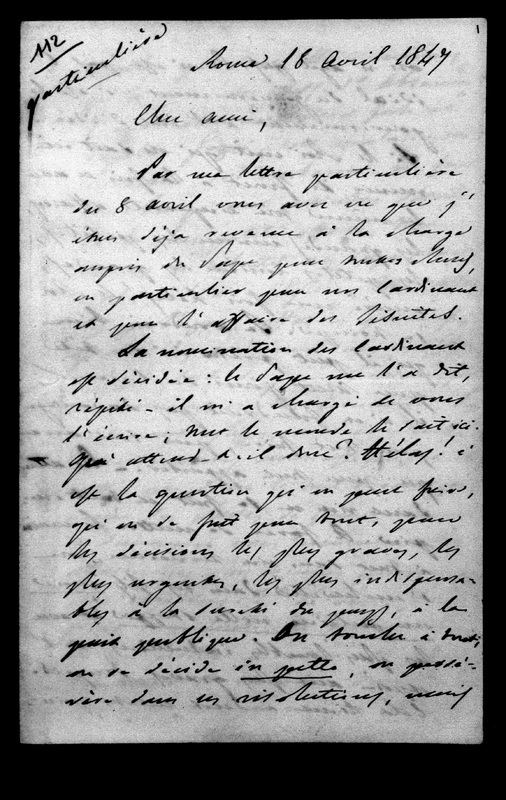 112
particulière
1
Rome 18 avril 1847
Cher ami,
Par ma lettre particulière
du 8 avril vous avez vu que j'
étais déjà revenu à la charge
auprès du Pape pour toutes choses,
en particulier pour nos Cardinaux
et pour l'affaire des Jésuites.
La nomination des Cardinaux
est décidée: le Pape me l'a dit,
répété - il m'a chargé de vous
l'écrire; tout le monde le sait ici.
Qu'attend-il donc? Hélas! c'
est la question qu'on peut faire,
qu'on se fait pour tout, pour
les décisions les plus graves, les
plus urgentes, les plus indispensa-
bles à la sureté du pays, à la
paix publique. On touche à tout,
on se décide in petto, on persé-
vère dans ses résolutions, mais